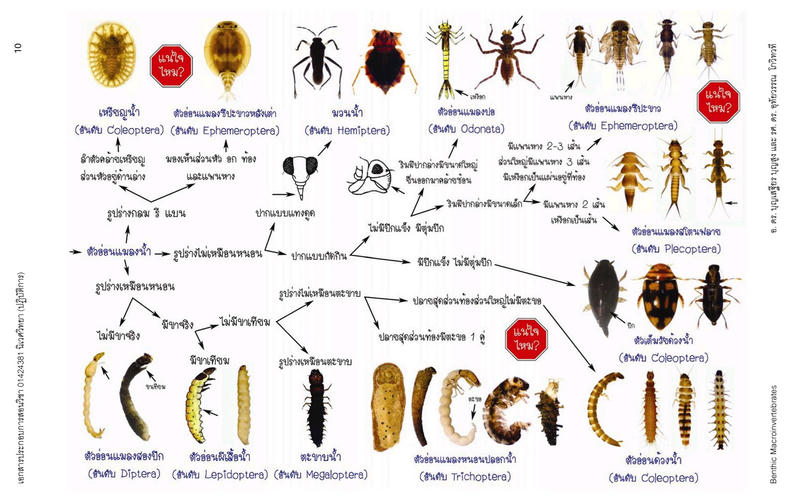 10
เอกสารประกอบการสอนวิชา 01424381 นิเวศวิทยา (ปฏิบัติการ)
แน่ใจ
ไหม?
เหรียญน้ำ
(อันดับ Coleoptera)
ตัวอ่อนแมลงชีปะขาวหลังเต่า
(อันดับ Ephemeroptera)
มวนน้ำ
(อันดับ Hemiptera)
เหงือก
ตัวอ่อนแมลงปอ
(อันดับ Odonata)
แพนหาง
ตัวอ่อนแมลงชีปะขาว
(อันดับ Ephemeroptera)
แน่ใจ
ไหม?
ลำตัวคล้ายเหรียญ
ส่วนหัวอยู่ด้านล่าง
มองเห็นส่วนหัว อก ท้อง
และแพนหาง
ริมฝีปากล่างมีขนาดใหญ่
ยื่นออกมาคล้ายช้อน
มีแพนหาง 2-3 เส้น
ส่วนใหญ่มีแพนหาง 3 เส้น
มีเหงือกเป็นแผ่นอยู่ที่ท้อง
รูปร่างกลม รี แบน
ปากแบบแทงดูด
ริมฝีปากล่างมีขนาดเล็ก
มีแพนหาง 2 เส้น
เหงือกเป็นเส้น
ตัวอ่อนแมลงสโตนฟลาย
(อันดับ Plecoptera)
ตัวอ่อนแมลงน้ำ
รูปร่างไม่เหมือนหนอน
ปากแบบกัดกิน
ไม่มีปีกแข็ง มีตุ่มปีก
มีปีกแข็ง ไม่มีตุ่มปีก
รูปร่างเหมือนหนอน
ปีก
ตัวเต็มวัยด้วงน้ำ
(อันดับ Coleoptera)
ไม่มีขาจริง
มีขาจริง
ไม่มีขาเทียม
มีขาเทียม
รูปร่างไม่เหมือนตะขาบ
รูปร่างเหมือนตะขาบ
ปลายสุดส่วนท้องส่วนใหญ่ไม่มีตะขอ
ปลายสุดส่วนท้องมีตะขอ 1 คู่
แน่ใจ
ไหม?
ขาเทียม
ตะขอ
ตัวอ่อนแมลงสองปีก
(อันดับ Diptera)
ตัวอ่อนผีเสื้อน้ำ
(อันดับ Lepidoptera)
ตะขาบน้ำ
(อันดับ Megaloptera)
ตัวอ่อนแมลงหนอนปลอกน้ำ
(อันดับ Trichoptera)
ตัวอ่อนด้วงน้ำ
(อันดับ Coleoptera)
อ. ดร. บุญเสฐียร บุญสูง และ รศ. ดร. อุทัยวรรณ โกวิทวที
Benthic Macroinvertebrates